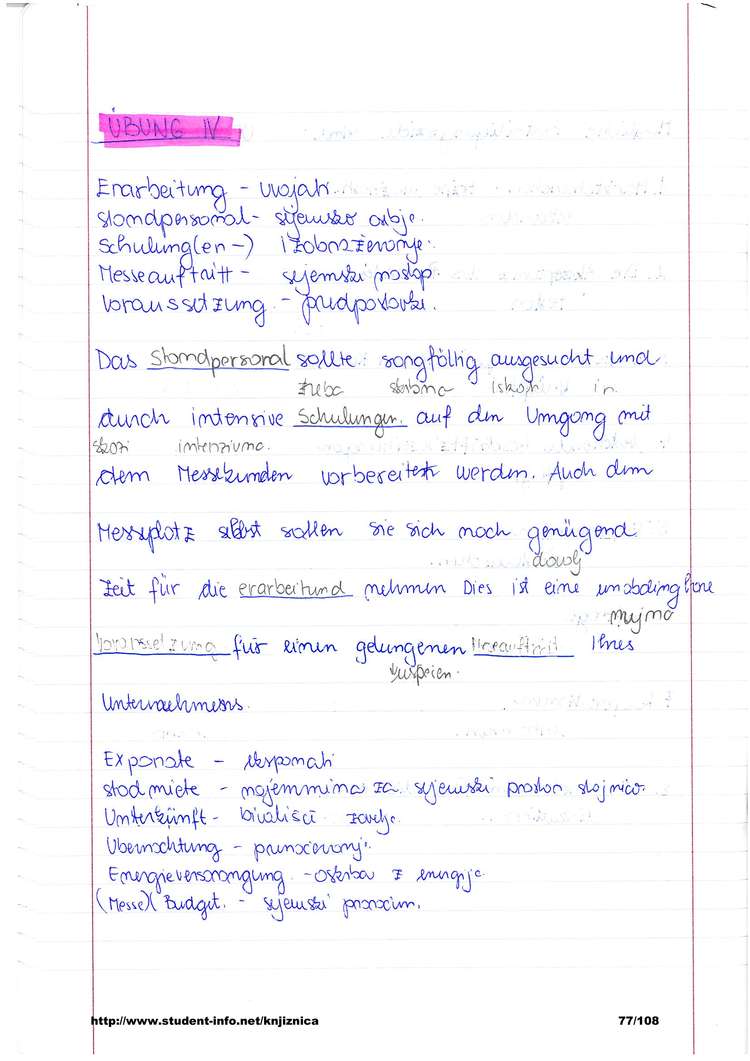 ÜBUNG IV
Erarbeitung - uvajati
Standpersonal - sejemsko osbje.
Schulung(en-) izobraževanje.
Messeauftritt - sejemski nastop
Voraussetzung - predpostavke.
Das Standpersonal sollte sorgfältig ausgesucht und
treba skrbno in
durch intensive Schulungen auf den Umgang mit
skozi intenzivno.
dem Messekunden vorbereitet werden. Auch dem
Messeplatz selbst sollen sie sich noch genügend
dovolj
Zeit für die erarbeitund nehmen Dies ist eine unabdingbare
nujna
Voraussetzung für einen gelungenen Messeauftritt Ihres
uspešen.
Unternehmens.
Exponate - eksponati
stadmiete - najemnina za sejemski prostor stojnico.
Unterkünft - bivališče
Übernachtung - prenočevanje.
Energieversorangung. - oskrba z energijo
(Messe)( Budget. - sejemski proračun.
http://www.student-info.net/knjiznica 77/108